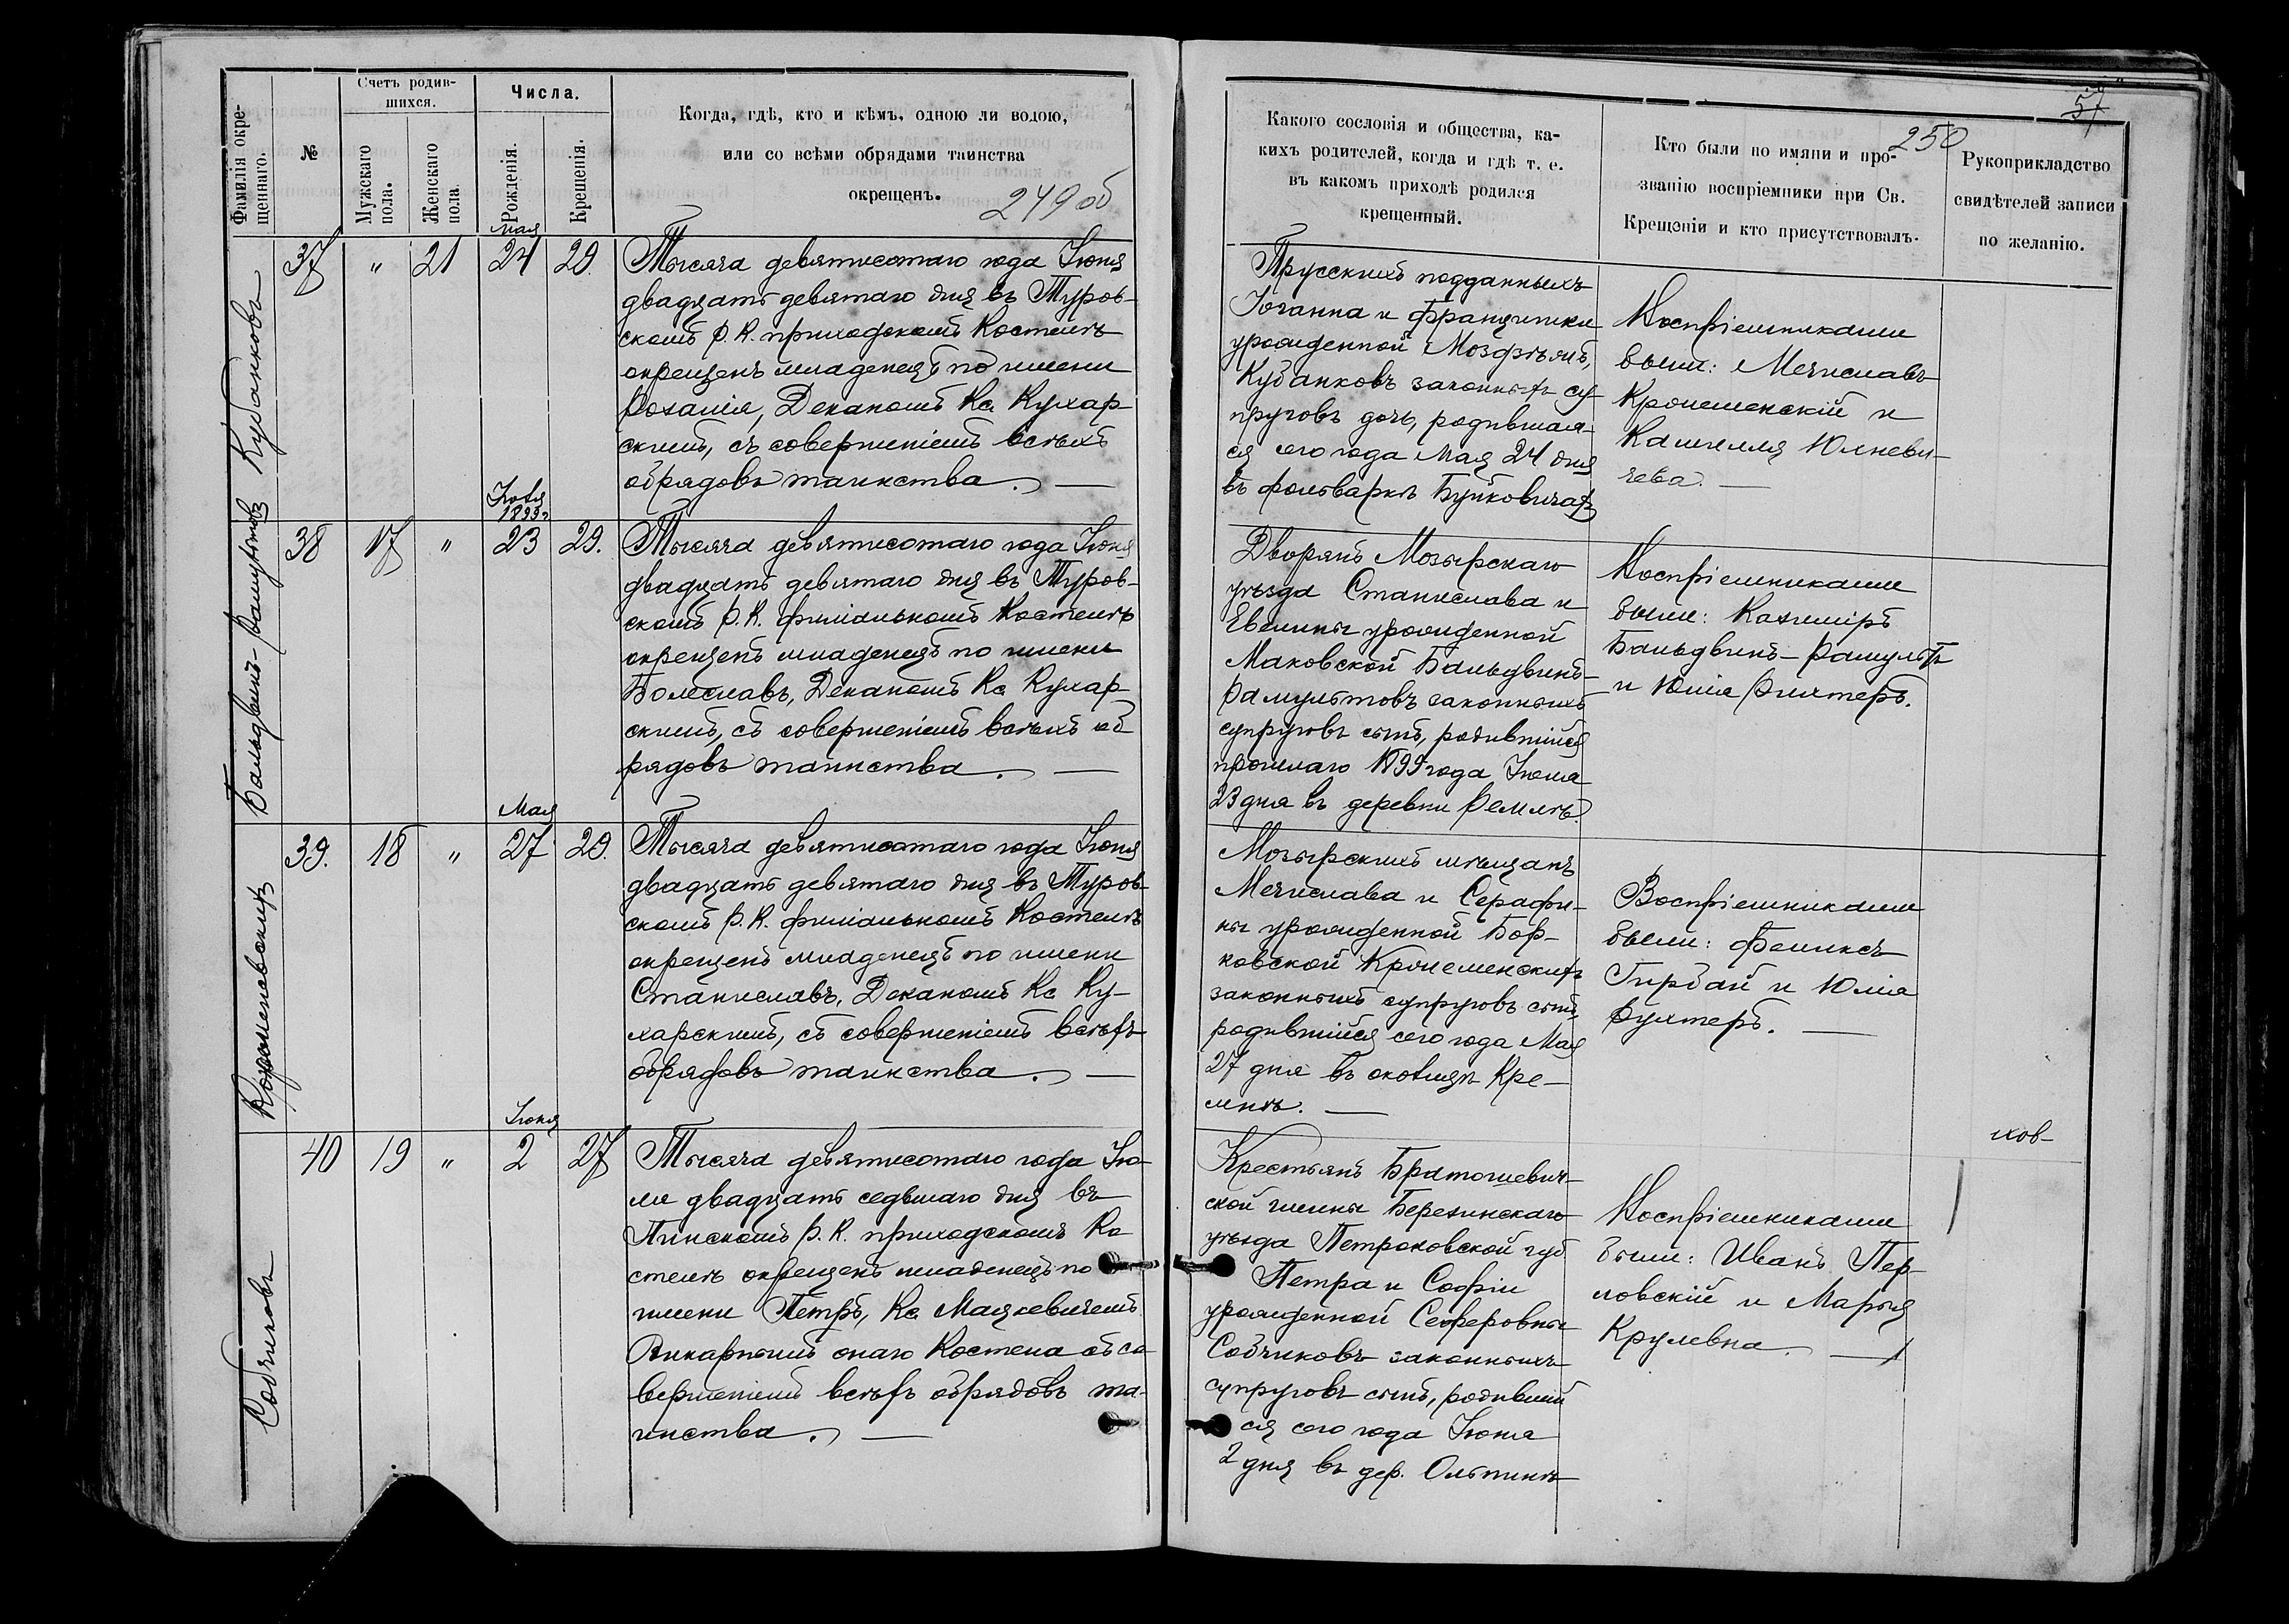 Фамилія окре-
щеннаго.
№
Счетъ родив-
шихся.
Мужскаго
пола.
Женскаго
пола
Числа.
Рожденія.
Крещенія.
Когда, гдѣ, кто и кѣмъ, одною ли водою,
или со всѣми обрядами таинства
окрещенъ.
249 об
Какого сословія и общества, ка-
кихъ родителей, когда и гдѣ т. е.
въ какомъ приходѣ родился
крещенный.
Кто были по имяни и про-
званію воспріемники при Св.
Крещеніи и кто присутствовалъ.
250
57
Рукоприкладство
свидѣтелей записи
по желанію.
Кубанковъ
37
"
21
Мая
24
29.
Тысяча девятисотаго года Іюня
двадцать девятаго дня въ Туров-
скомъ Р. К. приходскомъ Костелѣ
окрещенъ младенецъ по имени
Розалія, Деканомъ Кс. Кухар-
скимъ, съ совершеніемъ всѣхъ
обрядовъ таинства. —
Прусскихъ подданныхъ
Іоганна и Францишки
урожденной
Кубанковъ законныхъ су-
пруговъ дочь, родившая-
ся сего года Мая 24 дня
въ фольваркѣ Буйковичахъ
Воспріемниками
были: Мечиславъ
Кроменскій и
Камилля Юлневи-
чева. —
Бальдвинъ-Рамультовъ
38
17
"
Іюля
1899 г.
23
29.
Тысяча девятисотаго года Іюня
двадцать девятаго дня въ Туров-
скомъ Р. К. филіальномъ Костелѣ
окрещенъ младенецъ по имени
Болеславъ, Деканомъ Кс. Кухар-
скимъ, съ совершеніемъ всѣхъ об
рядовъ таинства. —
Дворянъ Мозырскаго
уѣзда Станислава и
Евелины урожденной
Маковской Бальдвинъ-
Рамультовъ законныхъ
супруговъ сынъ, родившійся
прошлаго 1899 года Іюля
23 дня въ деревни Ремлѣ.
Воспріемниками
были: Казиміръ
Бальдвинъ-Рамультъ
и Юлія Рихтеръ.
39.
18
"
Мая
27
29.
Тысяча девятисотаго года Іюня
двадцать девятаго дня въ Туров-
скомъ Р. К. филіальномъ Костелѣ
окрещенъ младенецъ по имени
Станиславъ, Деканомъ Кс. Ку-
харскимъ, съ совершеніемъ всѣхъ
обрядовъ таинства. —
Мозырскихъ мѣщанъ
Мечислава и Серафи-
ны урожденной Бор-
ковской Кроменскихъ
законныхъ супруговъ сынъ,
родившійся сего года Мая
27 дня въ околицѣ Кре-
мнѣ. —
Воспріемниками
были: Феликсъ
Гирбай и Юлія
Рихтеръ. —
Собчиковъ
40
19
"
Іюня
2
27
Тысяча девятисотаго года Ію-
ля двадцать седьмаго дня въ
Пинскомъ Р. К. приходскомъ Ко
стелѣ окрещенъ младенецъ по
имени Петръ, Кс. Мацкевичемъ
Викарнымъ онаго Костела съ со
вершеніемъ всѣхъ обрядовъ та-
инства. —
Крестьянъ Братошевич-
ской гмины Березинскаго
уѣзда Петроковской губ.
Петра и Софіи
урожденной Сеферовны
Собчиковъ законныхъ
супруговъ сынъ, родивший
ся сего года Іюня
2 дня въ дер. Ольпинѣ
Воспріемниками
были: Иванъ Пер-
ловскій и Марья
Крулевна. —